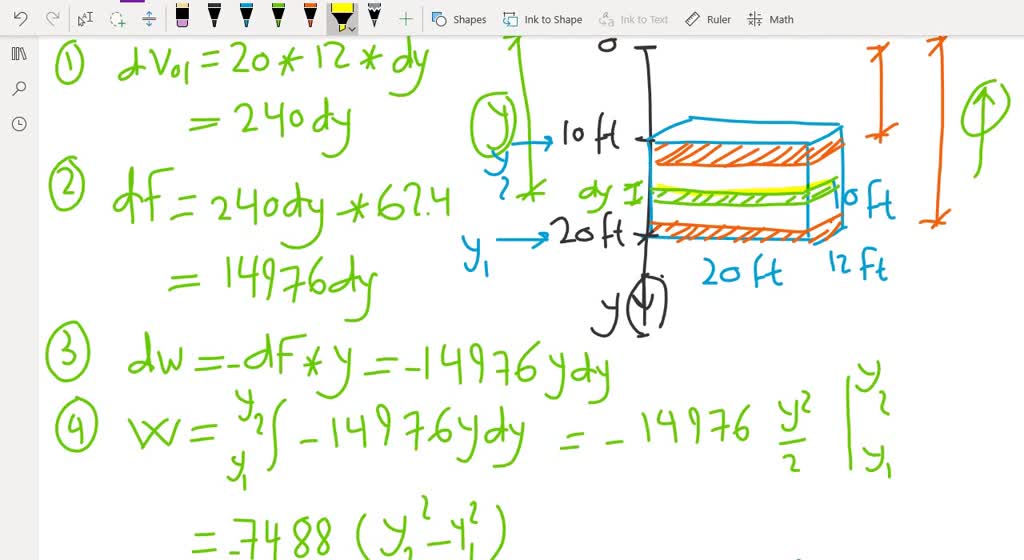 Shapes Ink to Shape Ink to Text Ruler Math
① dVol = 20 * 12 * dy
= 240dy
② dF = 240dy * 62.4
= 14976dy
③ dw = -dF * y = -14976 y dy
④ W = y₂ ∫ y₁ - 14976 y dy = - 14976 y²/2 | y₂ y₁
= -7488 (y₂² - y₁²)
0
y
y₂ → 10ft
dy
10ft
y₁ → 20ft
20ft 12ft
y(↓)